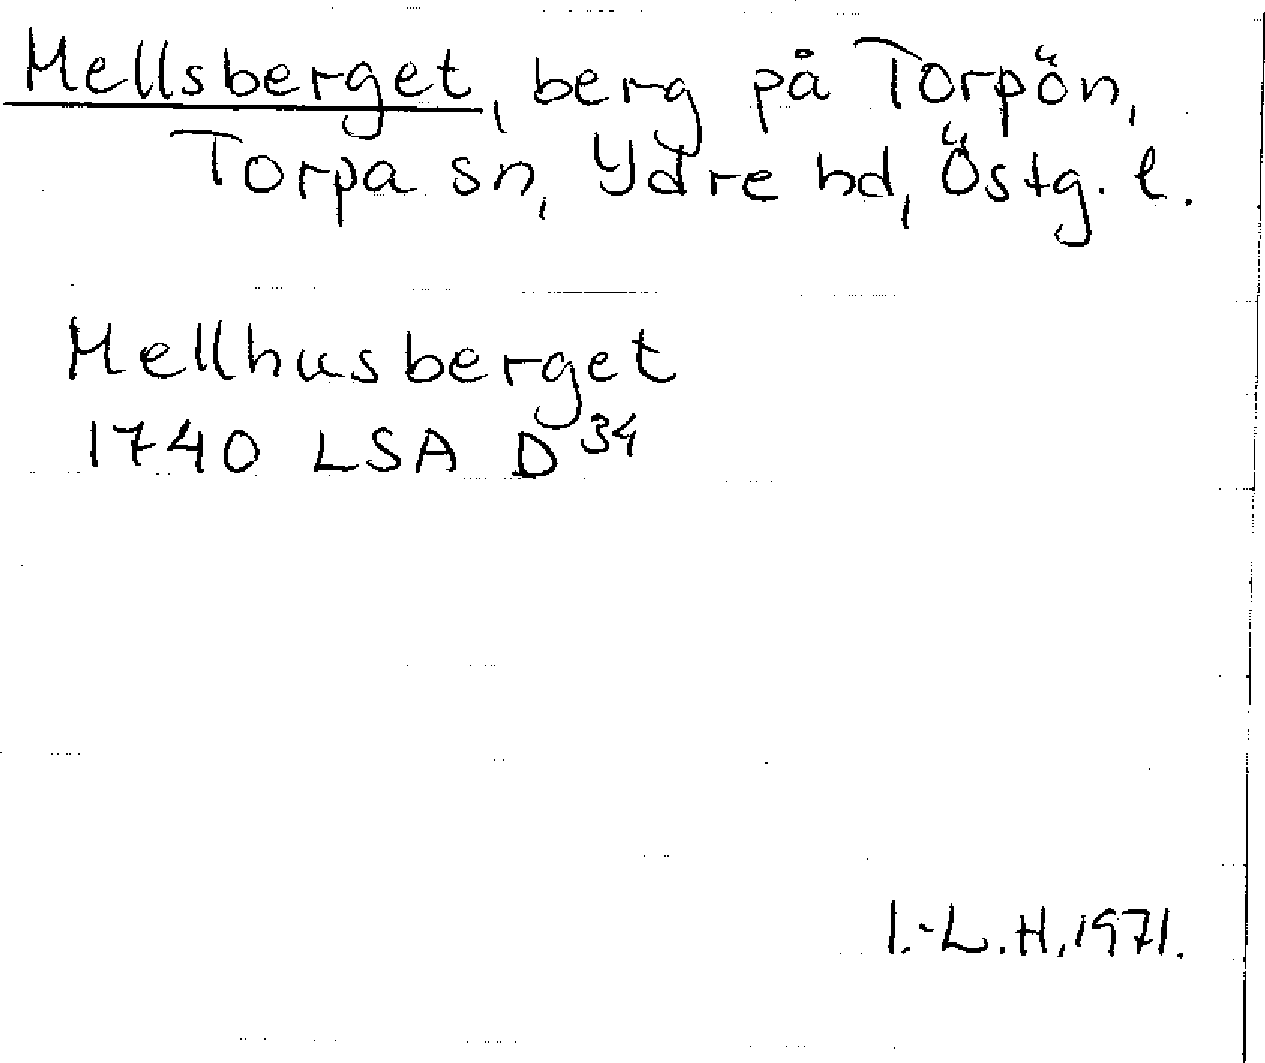 Mellsberget, berg på Torpön,
Torpa sn, Ydre hd, Östg. l.
Mellhusberget
1740 LSA D³⁴
I.-L. H, 1971.